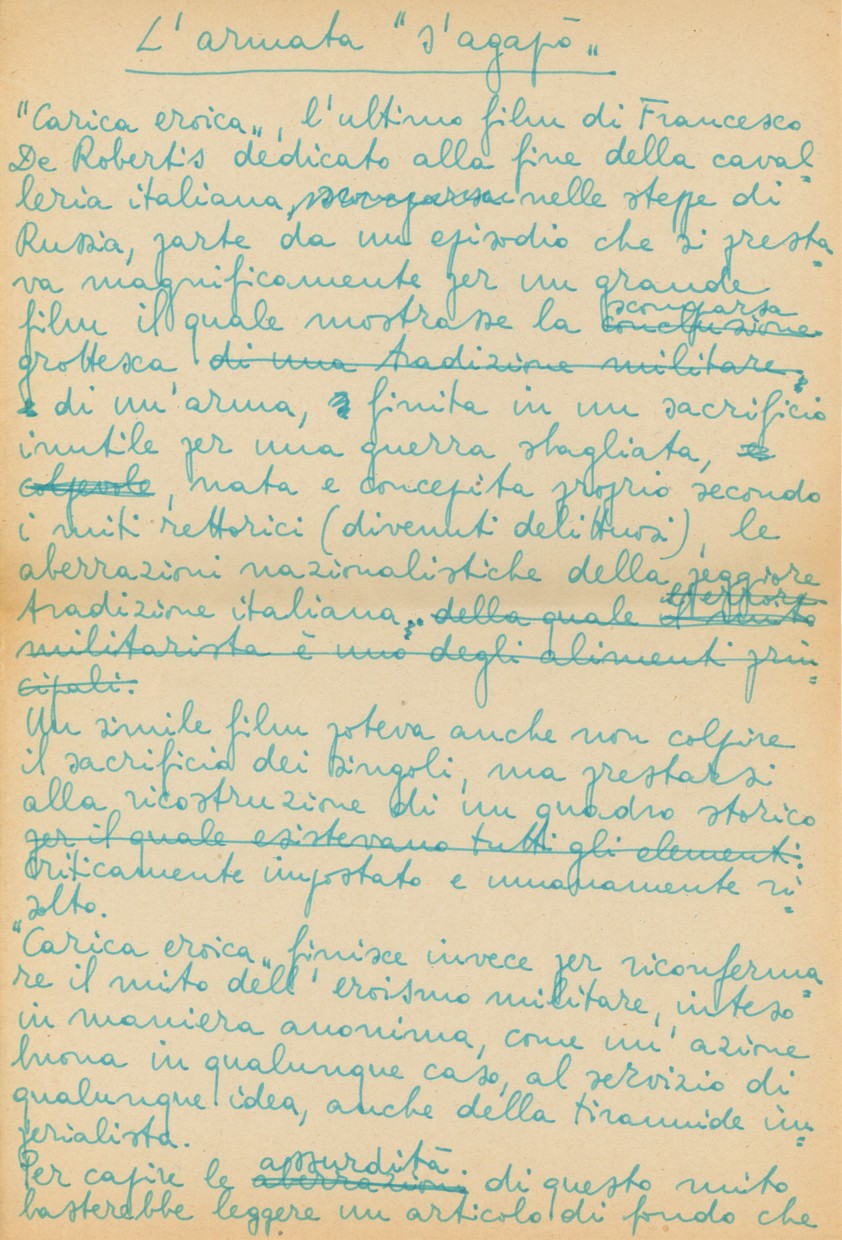 L'armata "s'agapò„
"Carica eroica„, l'ultimo film di Francesco
De Robertis dedicato alla fine della caval=
leria italiana, scomparsa nelle steppe di
Russia, parte da un episodio che si presta=
va magnificamente per un grande
film il quale mostrasse la scomparsa
conclusione
grottesca di una tradizione militare,
e di un'arma, e finita in un sacrificio
inutile per una guerra sbagliata, e
colpevole, nata e concepita proprio secondo
i miti rettorici (divenuti delittuosi), le
aberrazioni nazionalistiche della peggiore
tradizione italiana, della quale il mito
militarista è uno degli alimenti prin=
cipali.
Un simile film poteva anche non colpire
il sacrificio dei singoli, ma prestarsi
alla ricostruzione di un quadro storico
per il quale esistevano tutti gli elementi.
criticamente impostato e umanamente ri=
solto.
"Carica eroica„ finisce invece per riconferma=
re il mito dell'eroismo militare, inteso
in maniera anonima, come un'azione
buona in qualunque caso, al servizio di
qualunque idea, anche della tirannide im=
perialista.
Per capire le assurdità di questo mito
aberrazioni
basterebbe leggere un articolo di fondo che